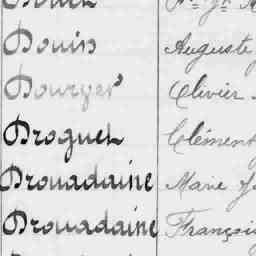 Douin Auguste
Dourger Olivier
Droguet Clément
Drouadaine Marie
Drouadaine François